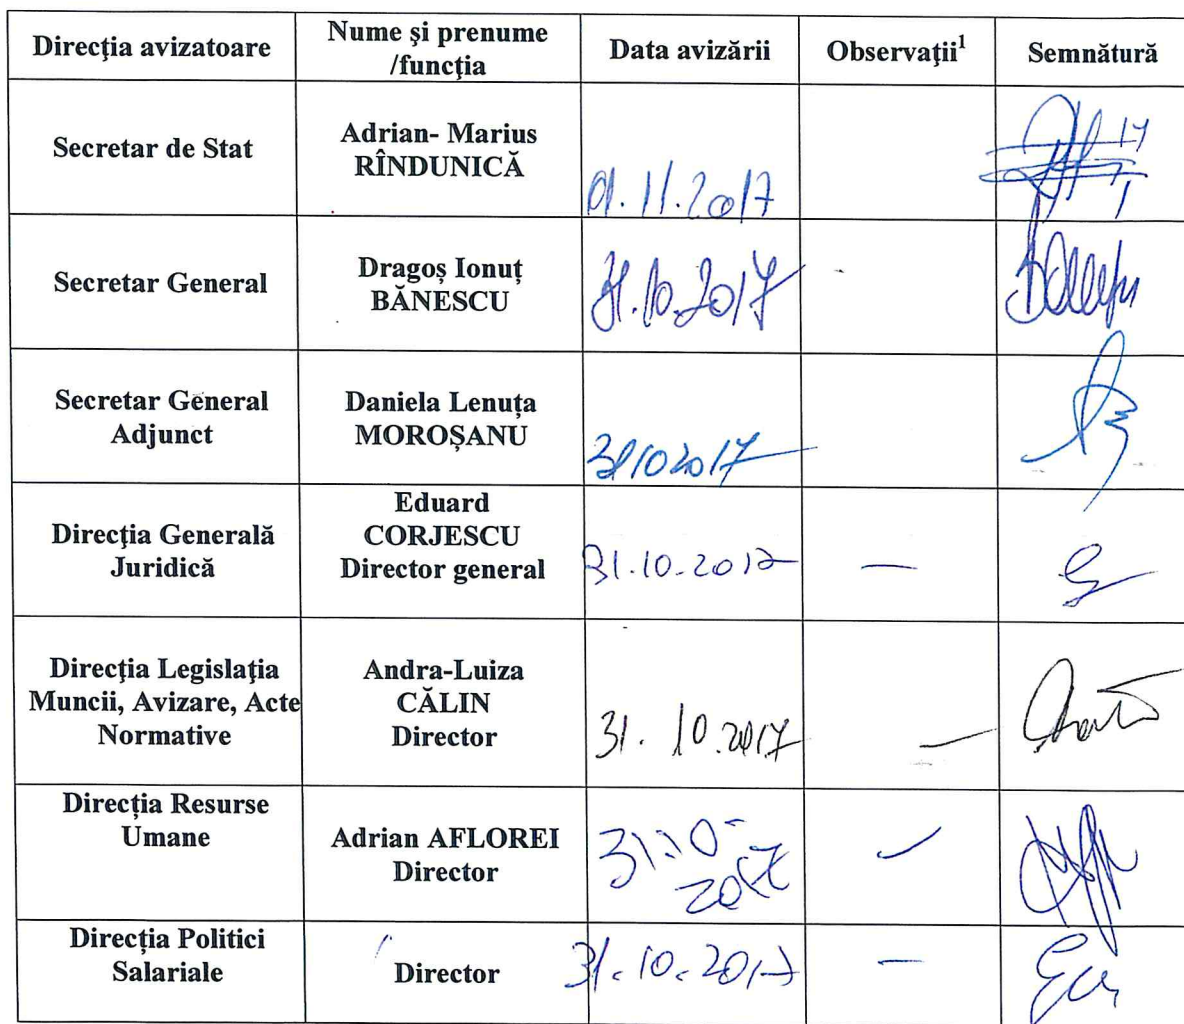 Direcţia avizatoare
Nume şi prenume
/funcţia
Data avizării
Observaţii¹
Semnătură
Secretar de Stat
Adrian- Marius
RÎNDUNICĂ
01.11.2017
Secretar General
Dragoș Ionuț
BĂNESCU
31.10.2017
Secretar General
Adjunct
Daniela Lenuța
MOROȘANU
31102017
Direcţia Generală
Juridică
Eduard
CORJESCU
Director general
31.10.2017
—
Direcţia Legislaţia
Muncii, Avizare, Acte
Normative
Andra-Luiza
CĂLIN
Director
31. 10.2017
—
Direcția Resurse
Umane
Adrian AFLOREI
Director
31.10-
2017
Direcția Politici
Salariale
Director
31.10.2017
—